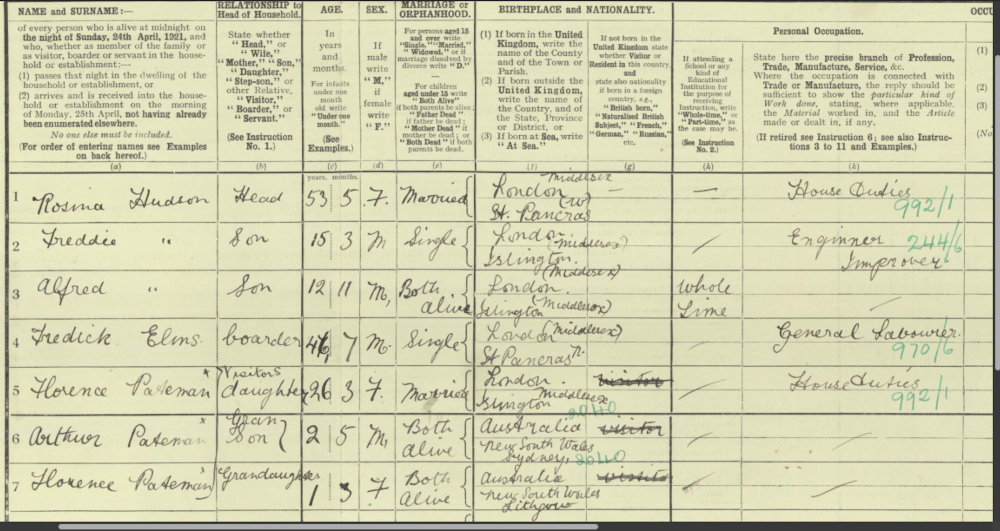 NAME AND SURNAME:—
of every person who is alive at midnight on
the night of Sunday, 24th April, 1921, and
who, whether as member of the family or
as visitor, boarder or servant in the house-
hold or establishment:—
(1) passes that night in the dwelling of the
household or establishment, or
(2) arrives and is received into the house-
hold or establishment on the morning
of Monday, 25th April, not having already
been enumerated elsewhere.
No one else must be included.
(For order of entering names see Examples
on back hereof.)
(a)
RELATIONSHIP to
Head of Household.
State whether
"Head," or
"Wife,"
"Mother," "Son,"
"Daughter,"
"Step-son," or
other Relative,
"Visitor,"
"Boarder," or
"Servant."
(See Instruction
No. 1.)
(b)
AGE.
In
years
and
months.
For infants
under one
month
old write
"Under one
month."
(See
Examples.)
(c)
years, months.
SEX.
If
male
write
"M.,"
if
female
write
"F."
(d)
MARRIAGE or
ORPHANHOOD.
For persons aged 15
and over write
"Single," "Married,"
"Widowed," or if
marriage dissolved by
divorce write "D."
For children
aged under 15 write
"Both Alive"
if both parents be alive;
"Father Dead"
if father be dead;
"Mother Dead" if
mother be dead; or
"Both Dead" if both
parents be dead.
(e)
BIRTHPLACE and NATIONALITY.
(1) If born in the United
Kingdom, write the
name of the County
and of the Town or
Parish.
(2) If born outside the
United Kingdom,
write the name of the
Country, and of
the State, Province
or District, or
(3) If born at Sea, write
"At Sea."
(f)
If not born in the
United Kingdom state
whether Visitor or
Resident in this country,
and
state also nationality
if born in a foreign
country, e.g.,
"British born,"
"Naturalised British
Subject," "French,"
"German," "Russian,"
etc.
(g)
If attending a
School or any
kind of
Educational
Institution for
the purpose of
receiving
Instruction, write
"Whole-time," or
"Part-time," as
the case may be.
(See Instruction
No. 2.)
(h)
OCCU
Personal Occupation.
State here the precise branch of Profession,
Trade, Manufacture, Service, &c.
Where the occupation is connected with
Trade or Manufacture, the reply should be
sufficient to show the particular kind of
Work done, stating, where applicable,
the Material worked in, and the Article
made or dealt in, if any.
(If retired see Instruction 6; see also Instruc-
tions 3 to 11 and Examples.)
(k)
(1)
(2)
(3)
(No
1 Rosina Hudson Head 53 5 F. Married London Middlesex (W) St. Pancras — — House Duties 992/1
2 Freddie " Son 15 3 M Single London (Middlesex) Islington Enginner Improver 244/6
3 Alfred " Son 12 11 M, Both alive London (Middlesex) Islington (Middlesex) Whole Time
4 Fredick Elms boarder 46 7 M. Single London (Middlesex) St Pancras General Labourer. 970/6
5 Florence Pateman Visitors daughter 26 3 F. Married London. Islington Middlesex visitor House duties 992/1
6 Arthur Pateman Gran Son 2 5 M, Both alive Australia New South Wales Sydney, 2040 visitor
7 Florence Pateman Grandaughter 1 3 F Both Alive Australia New South Wales Lithgow 2040 visitor